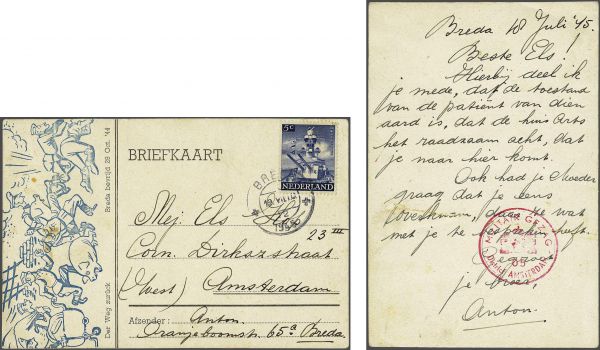 Breda bevrijd 29 Oct. '44
Der Weg zurück
BRIEFKAART
5c
NEDERLAND
BRE
Mej. Els
23 III
Corn. Dirkszstraat
(West) Amsterdam
Afzender: Anton
Oranjeboomstr. 65a Breda.
Breda 18 Juli '45.
Beste Els!
Hierbij deel ik
je mede, dat de toestand
van de patiënt van dien
aard is, dat de huisarts
het raadzaam acht, dat
je naar hier komt.
Ook had je Moeder
graag dat je eens
daar ze wat
met je te bespreken heeft.
Gegroet
je broer,
Anton.
MILITAIR GEZAG
AMSTERDAM